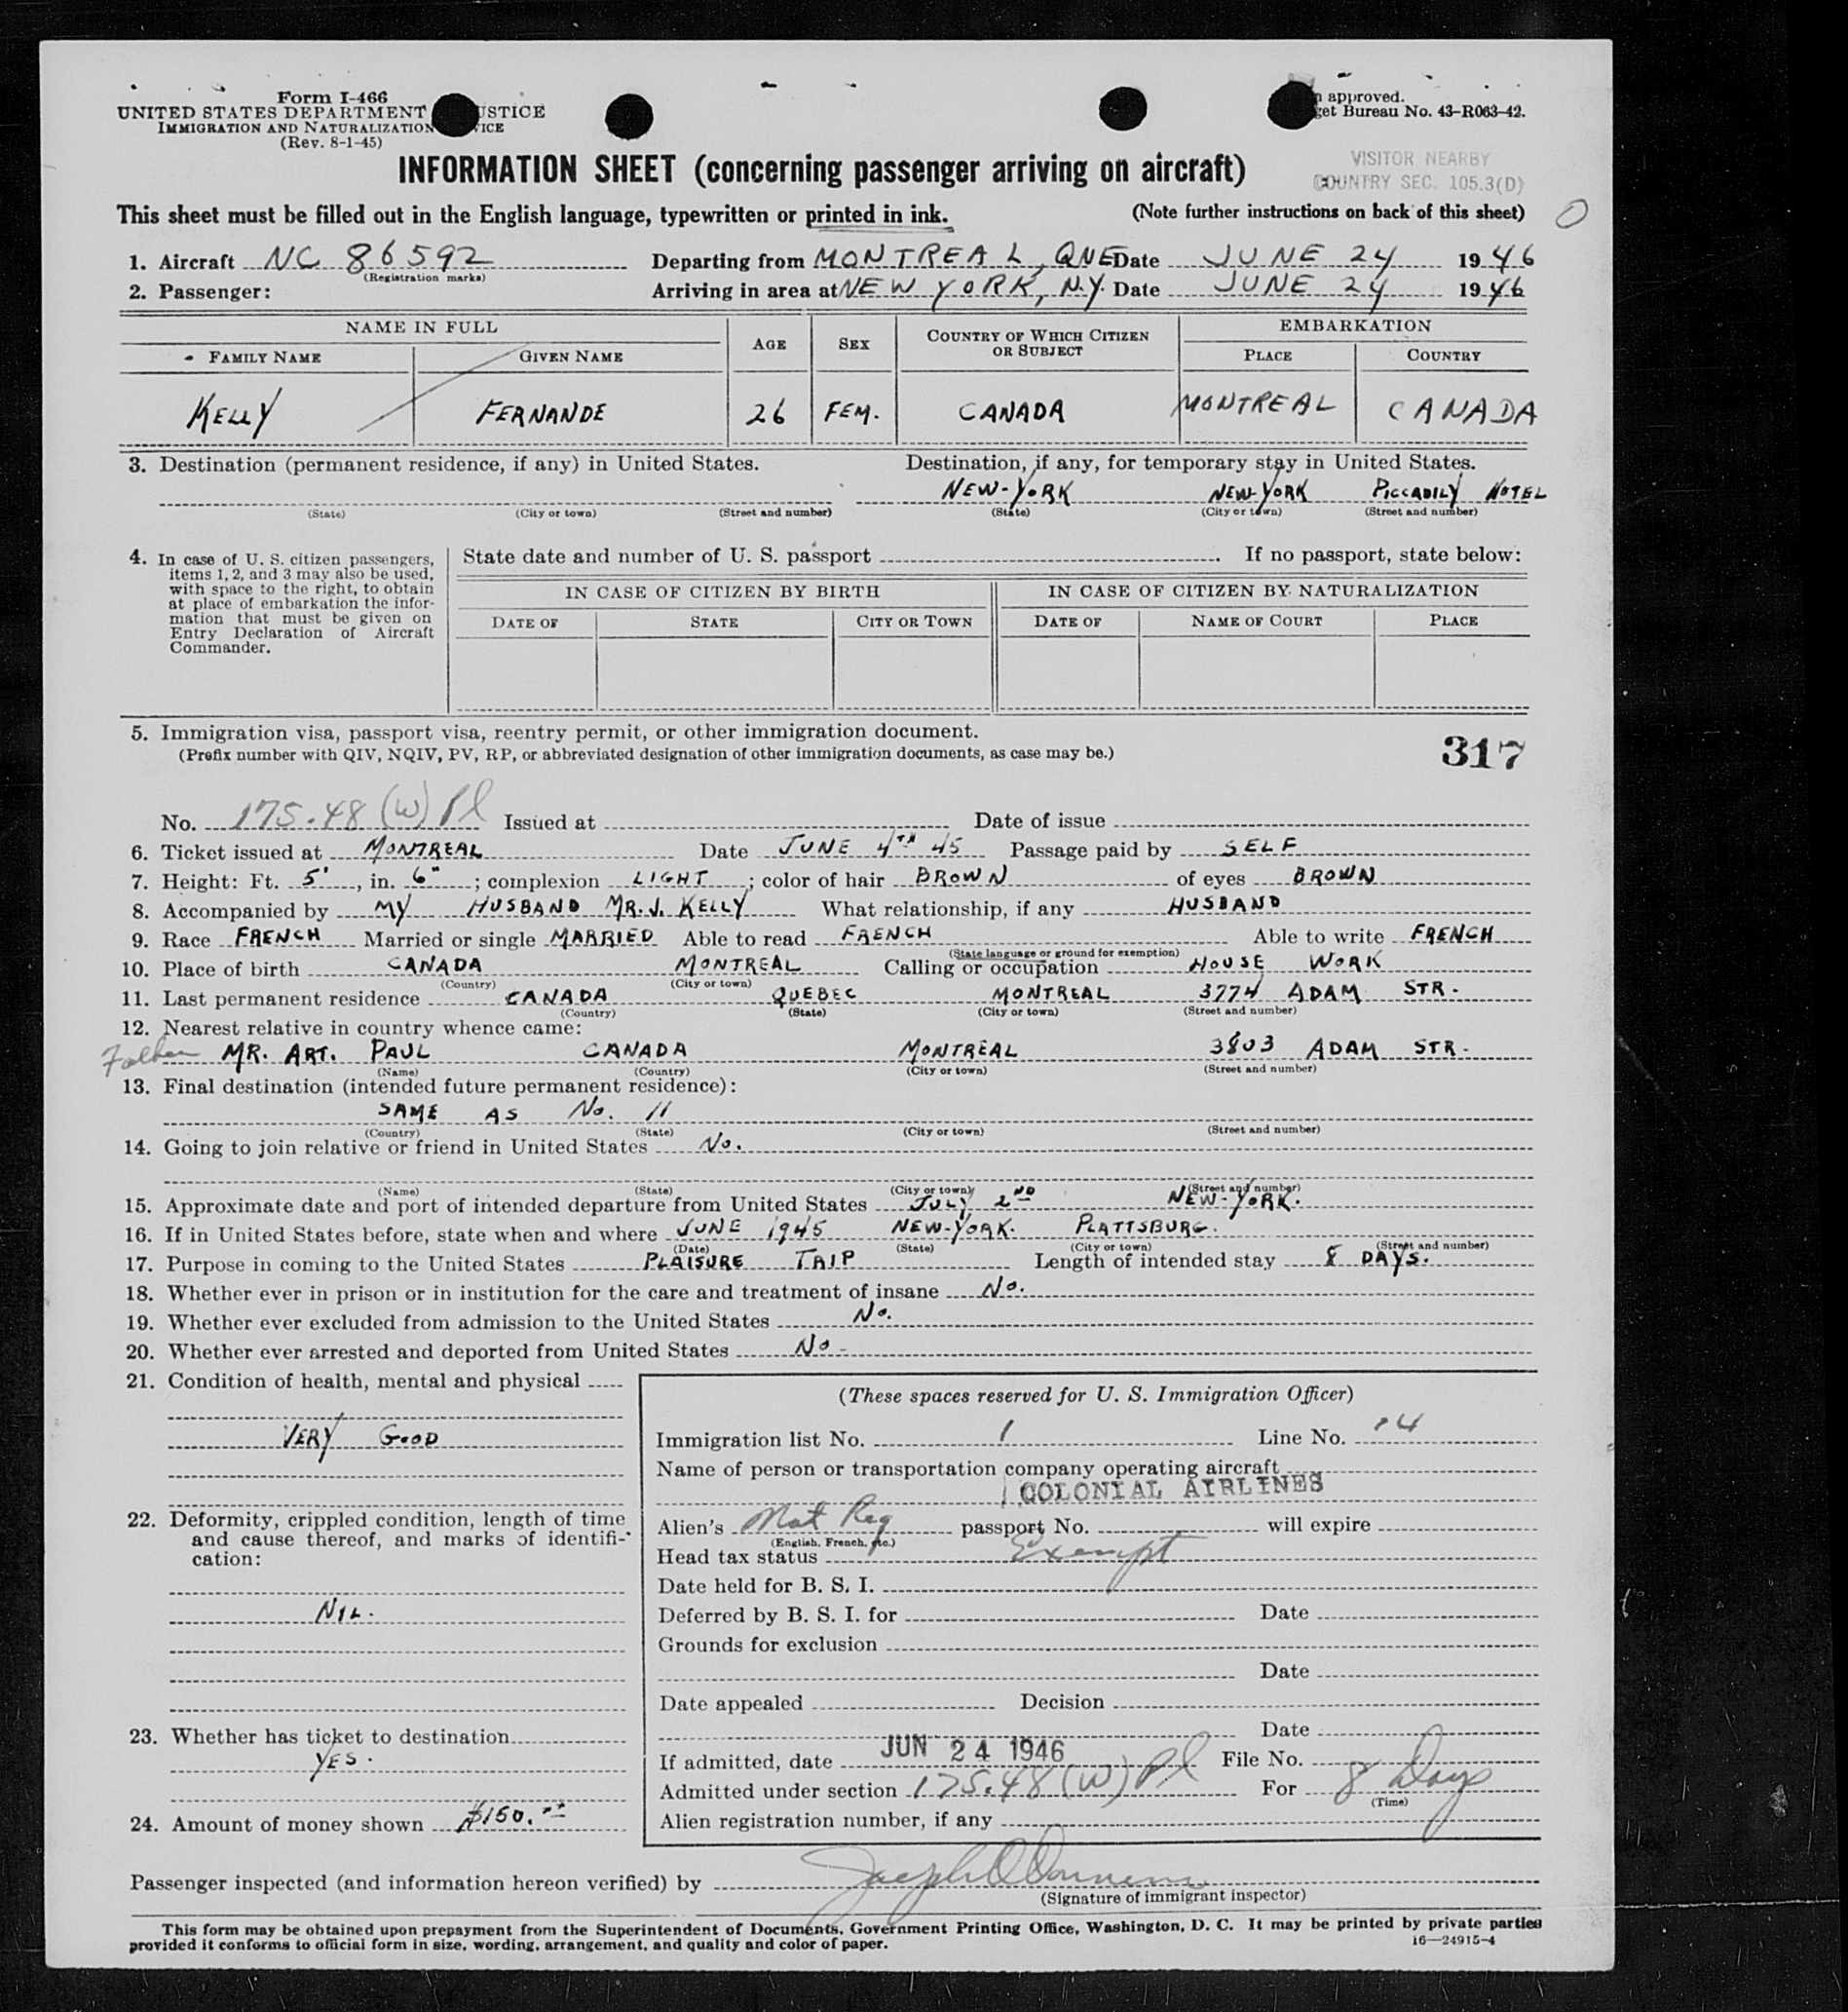 Form I-466
UNITED STATES DEPARTMENT USTICE
IMMIGRATION AND NATURALIZATION VICE
(Rev. 8-1-45)
approved.
get Bureau No. 43-R063-42.
INFORMATION SHEET (concerning passenger arriving on aircraft)
VISITOR NEARBY
COUNTRY SEC. 105.3(D)
This sheet must be filled out in the English language, typewritten or printed in ink. (Note further instructions on back of this sheet)
1. Aircraft NC 86592 Departing from MONTREAL, QUE Date JUNE 24 1946
(Registration marks)
2. Passenger: Arriving in area at NEW YORK, N.Y. Date JUNE 24 1946
NAME IN FULL AGE SEX COUNTRY OF WHICH CITIZEN OR SUBJECT EMBARKATION
FAMILY NAME GIVEN NAME PLACE COUNTRY
KELLY FERNANDE 26 FEM. CANADA MONTREAL CANADA
3. Destination (permanent residence, if any) in United States. Destination, if any, for temporary stay in United States.
NEW-YORK NEW-YORK PICCADILY HOTEL
(State) (City or town) (Street and number) (State) (City or town) (Street and number)
4. In case of U. S. citizen passengers, items 1, 2, and 3 may also be used, with space to the right, to obtain at place of embarkation the information that must be given on Entry Declaration of Aircraft Commander.
State date and number of U. S. passport If no passport, state below:
IN CASE OF CITIZEN BY BIRTH IN CASE OF CITIZEN BY NATURALIZATION
DATE OF STATE CITY OR TOWN DATE OF NAME OF COURT PLACE
5. Immigration visa, passport visa, reentry permit, or other immigration document.
(Prefix number with QIV, NQIV, PV, RP, or abbreviated designation of other immigration documents, as case may be.)
317
No. 175.48 (W) Pl Issued at Date of issue
6. Ticket issued at MONTREAL Date JUNE 4TH 45 Passage paid by SELF
7. Height: Ft. 5', in. 6"; complexion LIGHT; color of hair BROWN of eyes BROWN
8. Accompanied by MY HUSBAND MR. J. KELLY What relationship, if any HUSBAND
9. Race FRENCH Married or single MARRIED Able to read FRENCH Able to write FRENCH
(State language or ground for exemption)
10. Place of birth CANADA MONTREAL Calling or occupation HOUSE WORK
(Country) (City or town)
11. Last permanent residence CANADA QUEBEC MONTREAL 3774 ADAM STR.
(Country) (State) (City or town) (Street and number)
12. Nearest relative in country whence came:
Father MR. ART. PAUL CANADA MONTREAL 3803 ADAM STR.
(Name) (Country) (City or town) (Street and number)
13. Final destination (intended future permanent residence):
SAME AS No. 11
(Country) (State) (City or town) (Street and number)
14. Going to join relative or friend in United States No.
(Name) (State) (City or town) (Street and number)
15. Approximate date and port of intended departure from United States JULY 2ND NEW-YORK.
16. If in United States before, state when and where JUNE 1945 NEW-YORK. PLATTSBURG.
(Date) (State) (City or town) (Street and number)
17. Purpose in coming to the United States PLAISURE TRIP Length of intended stay 8 DAYS.
18. Whether ever in prison or in institution for the care and treatment of insane No.
19. Whether ever excluded from admission to the United States No.
20. Whether ever arrested and deported from United States No-
21. Condition of health, mental and physical
VERY GOOD
22. Deformity, crippled condition, length of time
and cause thereof, and marks of identifi-
cation:
NIL.
23. Whether has ticket to destination
YES.
24. Amount of money shown $150.00
(These spaces reserved for U. S. Immigration Officer)
Immigration list No. 1 Line No. 4
Name of person or transportation company operating aircraft
COLONIAL AIRLINES
Alien's Nat Reg passport No. will expire
(English, French, etc.)
Head tax status Exempt
Date held for B. S. I.
Deferred by B. S. I. for Date
Grounds for exclusion
Date
Date appealed Decision
Date
If admitted, date JUN 24 1946 File No.
Admitted under section 175.48 (W) Pl For 8 Days
(Time)
Alien registration number, if any
Passenger inspected (and information hereon verified) by
(Signature of immigrant inspector)
This form may be obtained upon prepayment from the Superintendent of Documents, Government Printing Office, Washington, D. C. It may be printed by private parties
provided it conforms to official form in size, wording, arrangement, and quality and color of paper.
16—24915-4